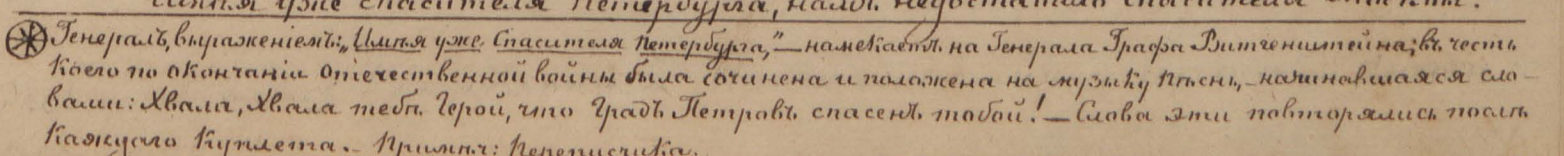 Имѣя уже спасителя Петербурга, намъ недоставало спасителя
Генералъ, выраженіемъ: „Имѣя уже Спасителя Петербурга,“ — намекаетъ на Генерала Графа Витгенштейна; въ честь
коего по окончаніи Отечественной войны была сочинена и положена на музыку пѣснь, – начинавшаяся сло–
вами: Хвала, Хвала тебѣ Герой, что Градъ Петровъ спасенъ тобой! — Слова эти повторялись послѣ
каждаго Куплета. – Примѣч: Переписчика.